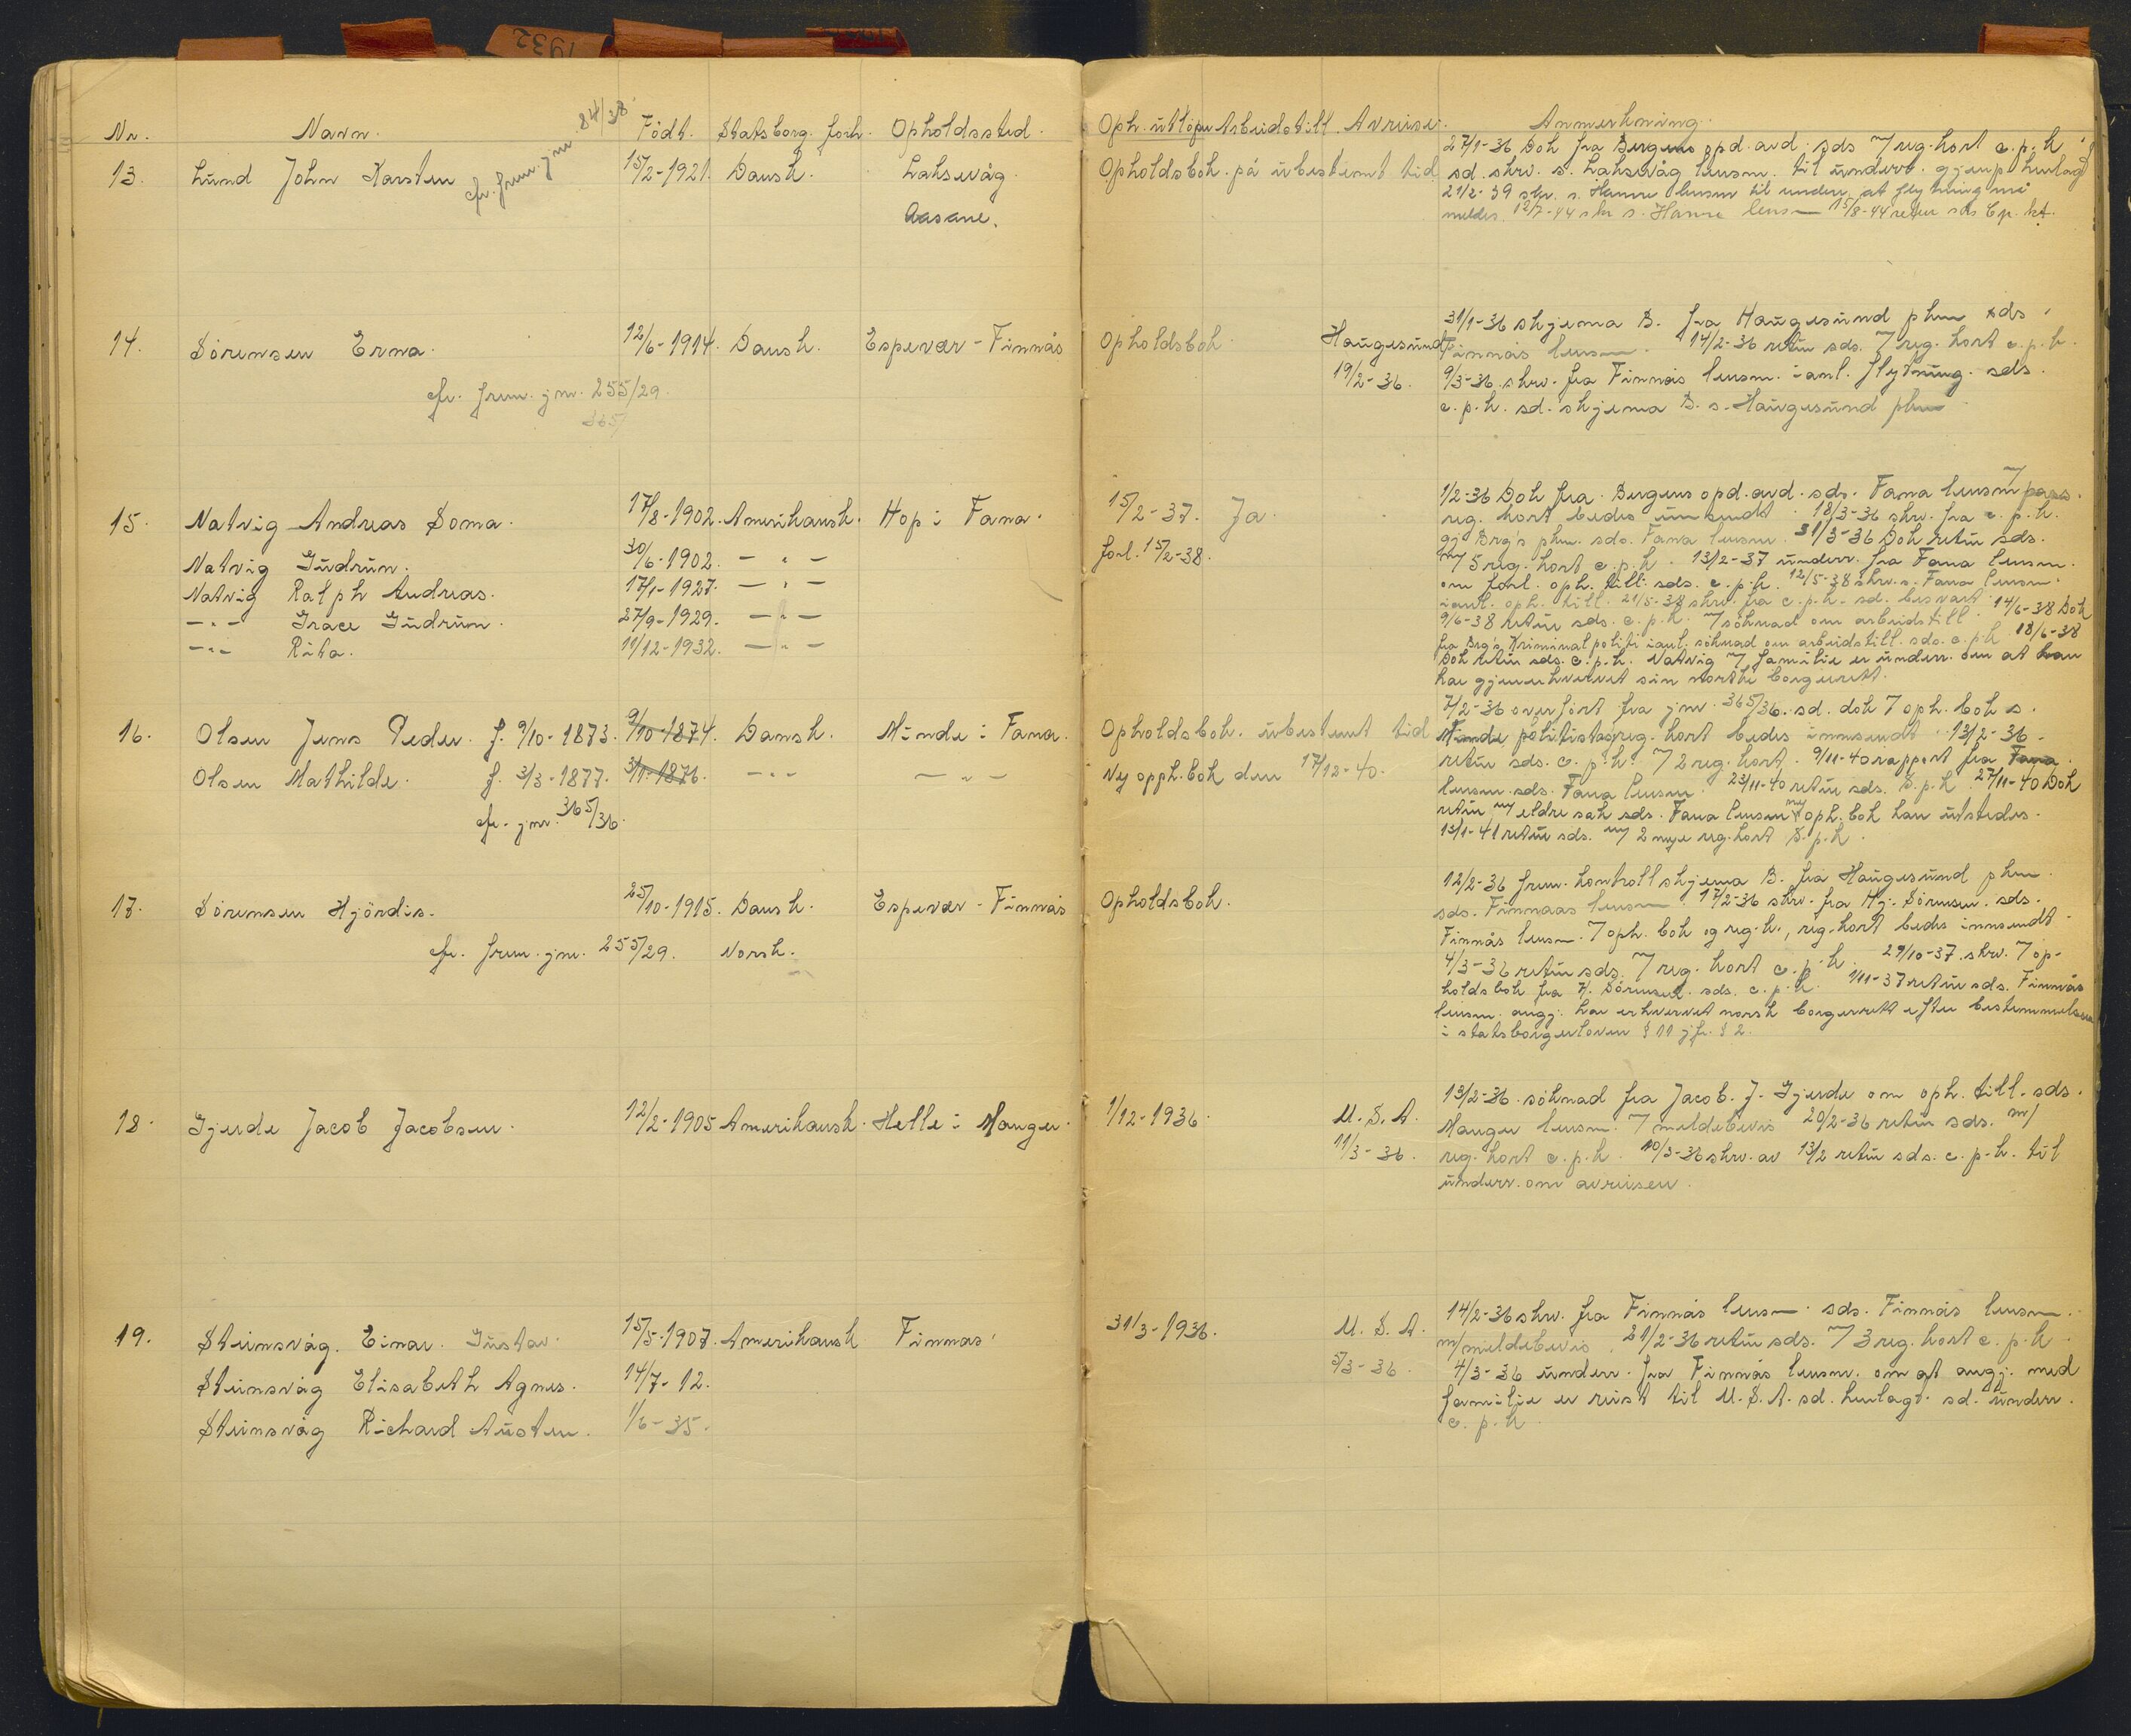 1932
Nr. Navn. Født. Statsborg. forh. Opholdssted.
84/38
13. Lund John Karsten cfr. frem. jnr. 15/2-1921. Dansk. Laksevåg.
Aasane.
14. Sörensen Erna. 12/6-1914. Dansk. Espevær - Finnås
cfr. frem. jnr. 255/29.
365/
15. Natvig Andreas Soma. 17/8-1902. Amerikansk. Hop i Fana.
Natvig Gudrun. 30/6-1902. - " -
Natvig Ralph Andreas. 17/1-1927. - " -
- " - Grace Gudrun. 27/9-1929. - " -
- " - Rita. 11/12-1932. - " -
16. Olsen Jens Peder. f. 9/10-1873. 9/10-1874. Dansk. Minde i Fana.
Olsen Mathilde. f. 3/3-1877. 3/11-1876. - " - - " -
cfr. jnr. 365/36.
17. Sörensen Hjördis. 25/10-1915. Dansk. Espevær - Finnås
cfr. frem. jnr. 255/29. Norsk.
18. Gjerde Jacob Jacobsen. 12/2-1905 Amerikansk. Helle i Manger.
19. Steinsvåg. Einar. Gustav 15/5-1907. Amerikansk Finnås
Steinsvåg Elisabeth Agnes. 14/7-12.
Steinsvåg Richard Austen. 1/6-35.
Oph. utløper Arbeidstill. Avreise. Anmerkning.
27/1-36 Dok fra Bergens opd. avd. sds 7 reg. kort c.p.k
Opholdsbok. på ubestemt tid sd. skrv. s. Laksevåg lensm. til underr. gjenp. henlagt
21/2-39 skr. s. Hamre lensm til underr. at flytning må
meldes. 12/7-44 skr s. Hamre lensm 15/8-44 retur sds kt.
31/1-36 skjema B. fra Haugesund pkm sds
Opholdsbok. Haugesund Finnås lensm. 14/2-36 retur sds. 7 reg. kort c.p.k.
19/2-36. 9/3-36. skrv. fra Finnås lensm. i anl. flytning. sds.
c.p.k. sd. skjema B. s. Haugesund pkm
1/2-36 Dok fra Bergens opd. avd. sds. Fana lensm 7 pass.
15/2-37. Ja. reg. kort bedes innsendt. 18/3-36 skrv. fra c.p.k.
gj Brg's pkm. sds. Fana lensm. 31/3-36 Dok retur sds.
forl. 15/2-38. m/ 5 reg. kort c.p.k. 13/2-37 underr. fra Fana lensm.
om forl. oph. till. sds. c.p.k. 12/5-38 skrv. s. Fana lensm.
i anl. oph. till. 21/5-38 skrv. fra c.p.k. sd. besvart. 14/6-38 Dok
9/6-38 retur sds. c.p.k. 7 söknad om arbeidstill.
fra Brg's Kriminalpoliti i anl. söknad om arbeidstill. sds. c.p.k 18/6-38
Dok retur sds. c.p.k. Natvig 7 familie er underr. om at han
har gjenerhvervet sin norske borgerrett.
7/2-36 overfört fra jnr. 365/36. sd. dok 7 oph. bok s.
Opholdsbok. ubestemt tid Minde politistas reg. kort bedes innsendt. 13/2-36.
retur sds. c.p.k. 7 2 reg. kort. 9/11-40 rapport fra Fana
Ny opph. bok den 17/12-40. lensm. sds. Fana lensm. 23/11-40 retur sds. S.p.k. 27/11-40 Dok
retur m/ eldre sak sds. Fana lensm ny oph. bok kan utstedes.
13/1-41 retur sds. m/ 2 nye reg. kort S.p.k.
12/2-36 frem. kontrollskjema B. fra Haugesund pkm.
Opholdsbok. sds. Finnaas lensm. 17/2-36 skrv. fra Hj. Sörensen. sds.
Finnås lensm. 7 oph. bok og reg. k., reg. kort bedes innsendt.
4/3-36 retur sds. 7 reg. kort c.p.k. 29/10-37. skrv. 7 op-
holdsbok fra H. Sörensen. sds. c.p.k. 1/11-37 retur sds. Finnås
lensm. angj. har erhvervet norsk borgerrett efter bestemmelsen
i statsborgerloven § 11 jfr. § 2.
13/2-36. söknad fra Jacob. J. Gjerde om oph. till. sds.
1/12-1936. U.S.A. Manger lensm. 7 meldebevis 29/2-36 retur sds. m/
11/3-36. reg. kort c.p.k. 10/3-36 skrv. av 13/2 retur sds. c.p.k. til
underr. om avreisen.
14/2-36 skrv. fra Finnås lensm. sds. Finnås lensm.
31/3-1936. U.S.A. m/ meldebevis. 21/2-36 retur sds. 7 3 reg. kort c.p.k
5/3-36. 4/3-36 underr. fra Finnås lensm. om at angj. med
familie er reist til U.S.A. sd. henlagt. sd. underr.
c.p.k